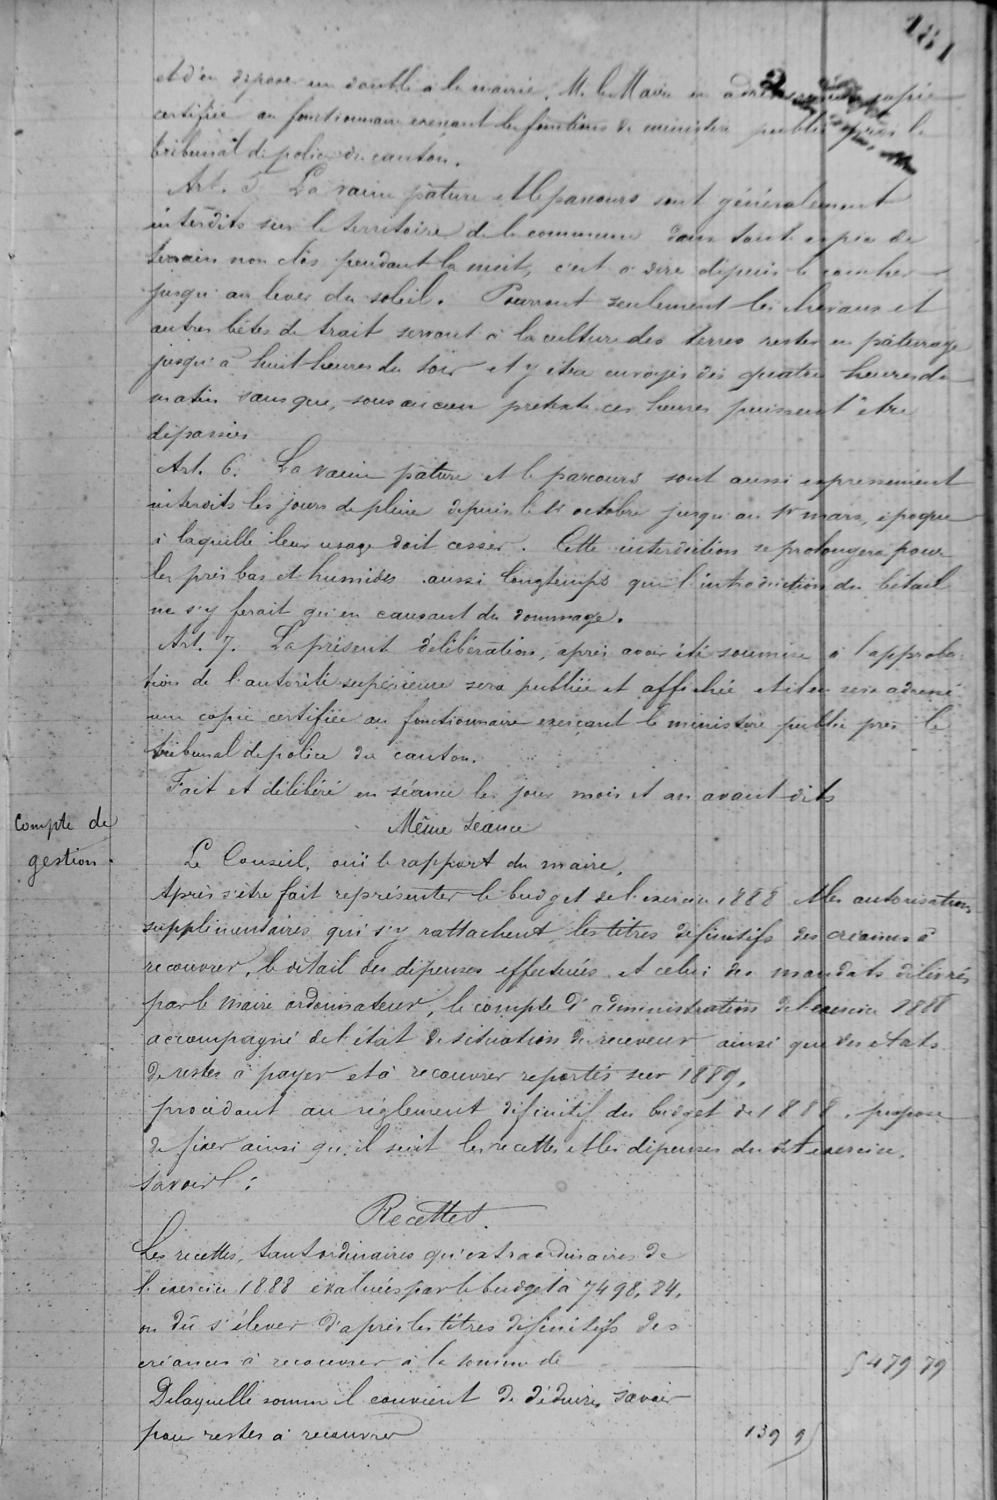 181
et d'en déposer un double à la mairie. M. le Maire en adressera copie
certifiée au fonctionnaire exerçant les fonctions de ministère public près le
tribunal de police du canton.
Art. 5. La vaine pâture et le parcours sont généralement
interdits sur le territoire de la commune dans toute espèce de
terrain non clos pendant la nuit, c'est à dire depuis le coucher
jusqu'au lever du soleil. Pourront seulement les chevaux et
autres bêtes de trait servant à la culture des terres rester en pâturage
jusqu'à huit heures du soir et y être envoyés dès quatre heures du
matin sans que, sous aucun prétexte ces heures puissent être
dépassées
Art. 6. La vaine pâture et le parcours sont aussi expressément
interdits les jours de pluie depuis le 1er octobre jusqu'au 1er mars, époque
à laquelle leur usage doit cesser. Cette interdiction se prolongera pour
les prés bas et humides aussi longtemps que l'introduction du bétail
ne s'y ferait qu'en causant du dommage.
Art. 7. La présent délibération, après avoir été soumise à l'approba-
tion de l'autorité supérieure sera publiée et affichée et il en sera adressé
une copie certifiée au fonctionnaire exerçant le ministère public près le
tribunal de police du canton.
Fait et délibéré en séance les jour mois et an avant dits
Même séance
Compte de
gestion.
Le Conseil, ouï le rapport du maire,
Après s'être fait représenter le budget de l'exercice 1888 et les autorisations
supplémentaires qui s'y rattachent, les titres définitifs des créances à
recouvrer, le détail des dépenses effectuées et celui des mandats délivrés
par le maire ordonnateur, le compte d'administration de l'exercice 1888
accompagné de l'état de situation du receveur ainsi que des états
de restes à payer et à recouvrer reportés sur 1889,
procédant au règlement définitif du budget de 1888, propose
de fixer ainsi qu'il suit les recettes et les dépenses du dit exercice,
savoir :
Recettes.
Les recettes, tant ordinaires qu'extraordinaires de
l'exercice 1888 évaluées par le budget à 7498,84,
ou dû s'élever d'après les titres définitifs des
créances à recouvrer à la somme de 5479 79
De laquelle somme il convient de déduire, savoir
pour restes à recouvrer 139 95